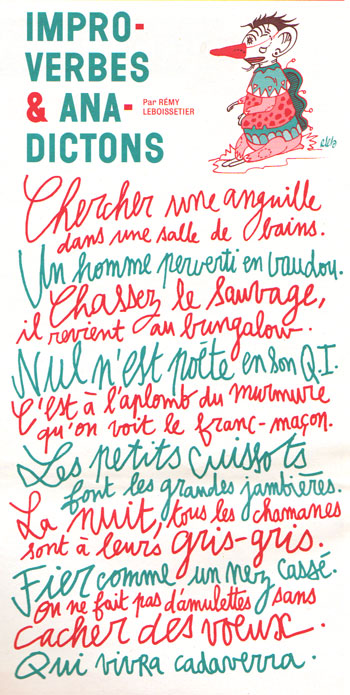 IMPRO-
VERBES
& ANA-
DICTONS
Par RÉMY
LEBOISSETIER
Chercher une anguille
dans une salle de bains.
Un homme perverti en vaudou.
Chassez le sauvage,
il revient au bungalow.
Nul n'est poéte en son Q.I.
C'est à l'aplomb du murmure
qu'on voit le franc-maçon.
Les petits cuissots
font les grandes jambières.
La nuit, tous les chamanes
sont à leurs gris-gris.
Fier comme un nez cassé.
On ne fait pas d'amulettes sans
cacher des voeux.
Qui vivra cadaverra.